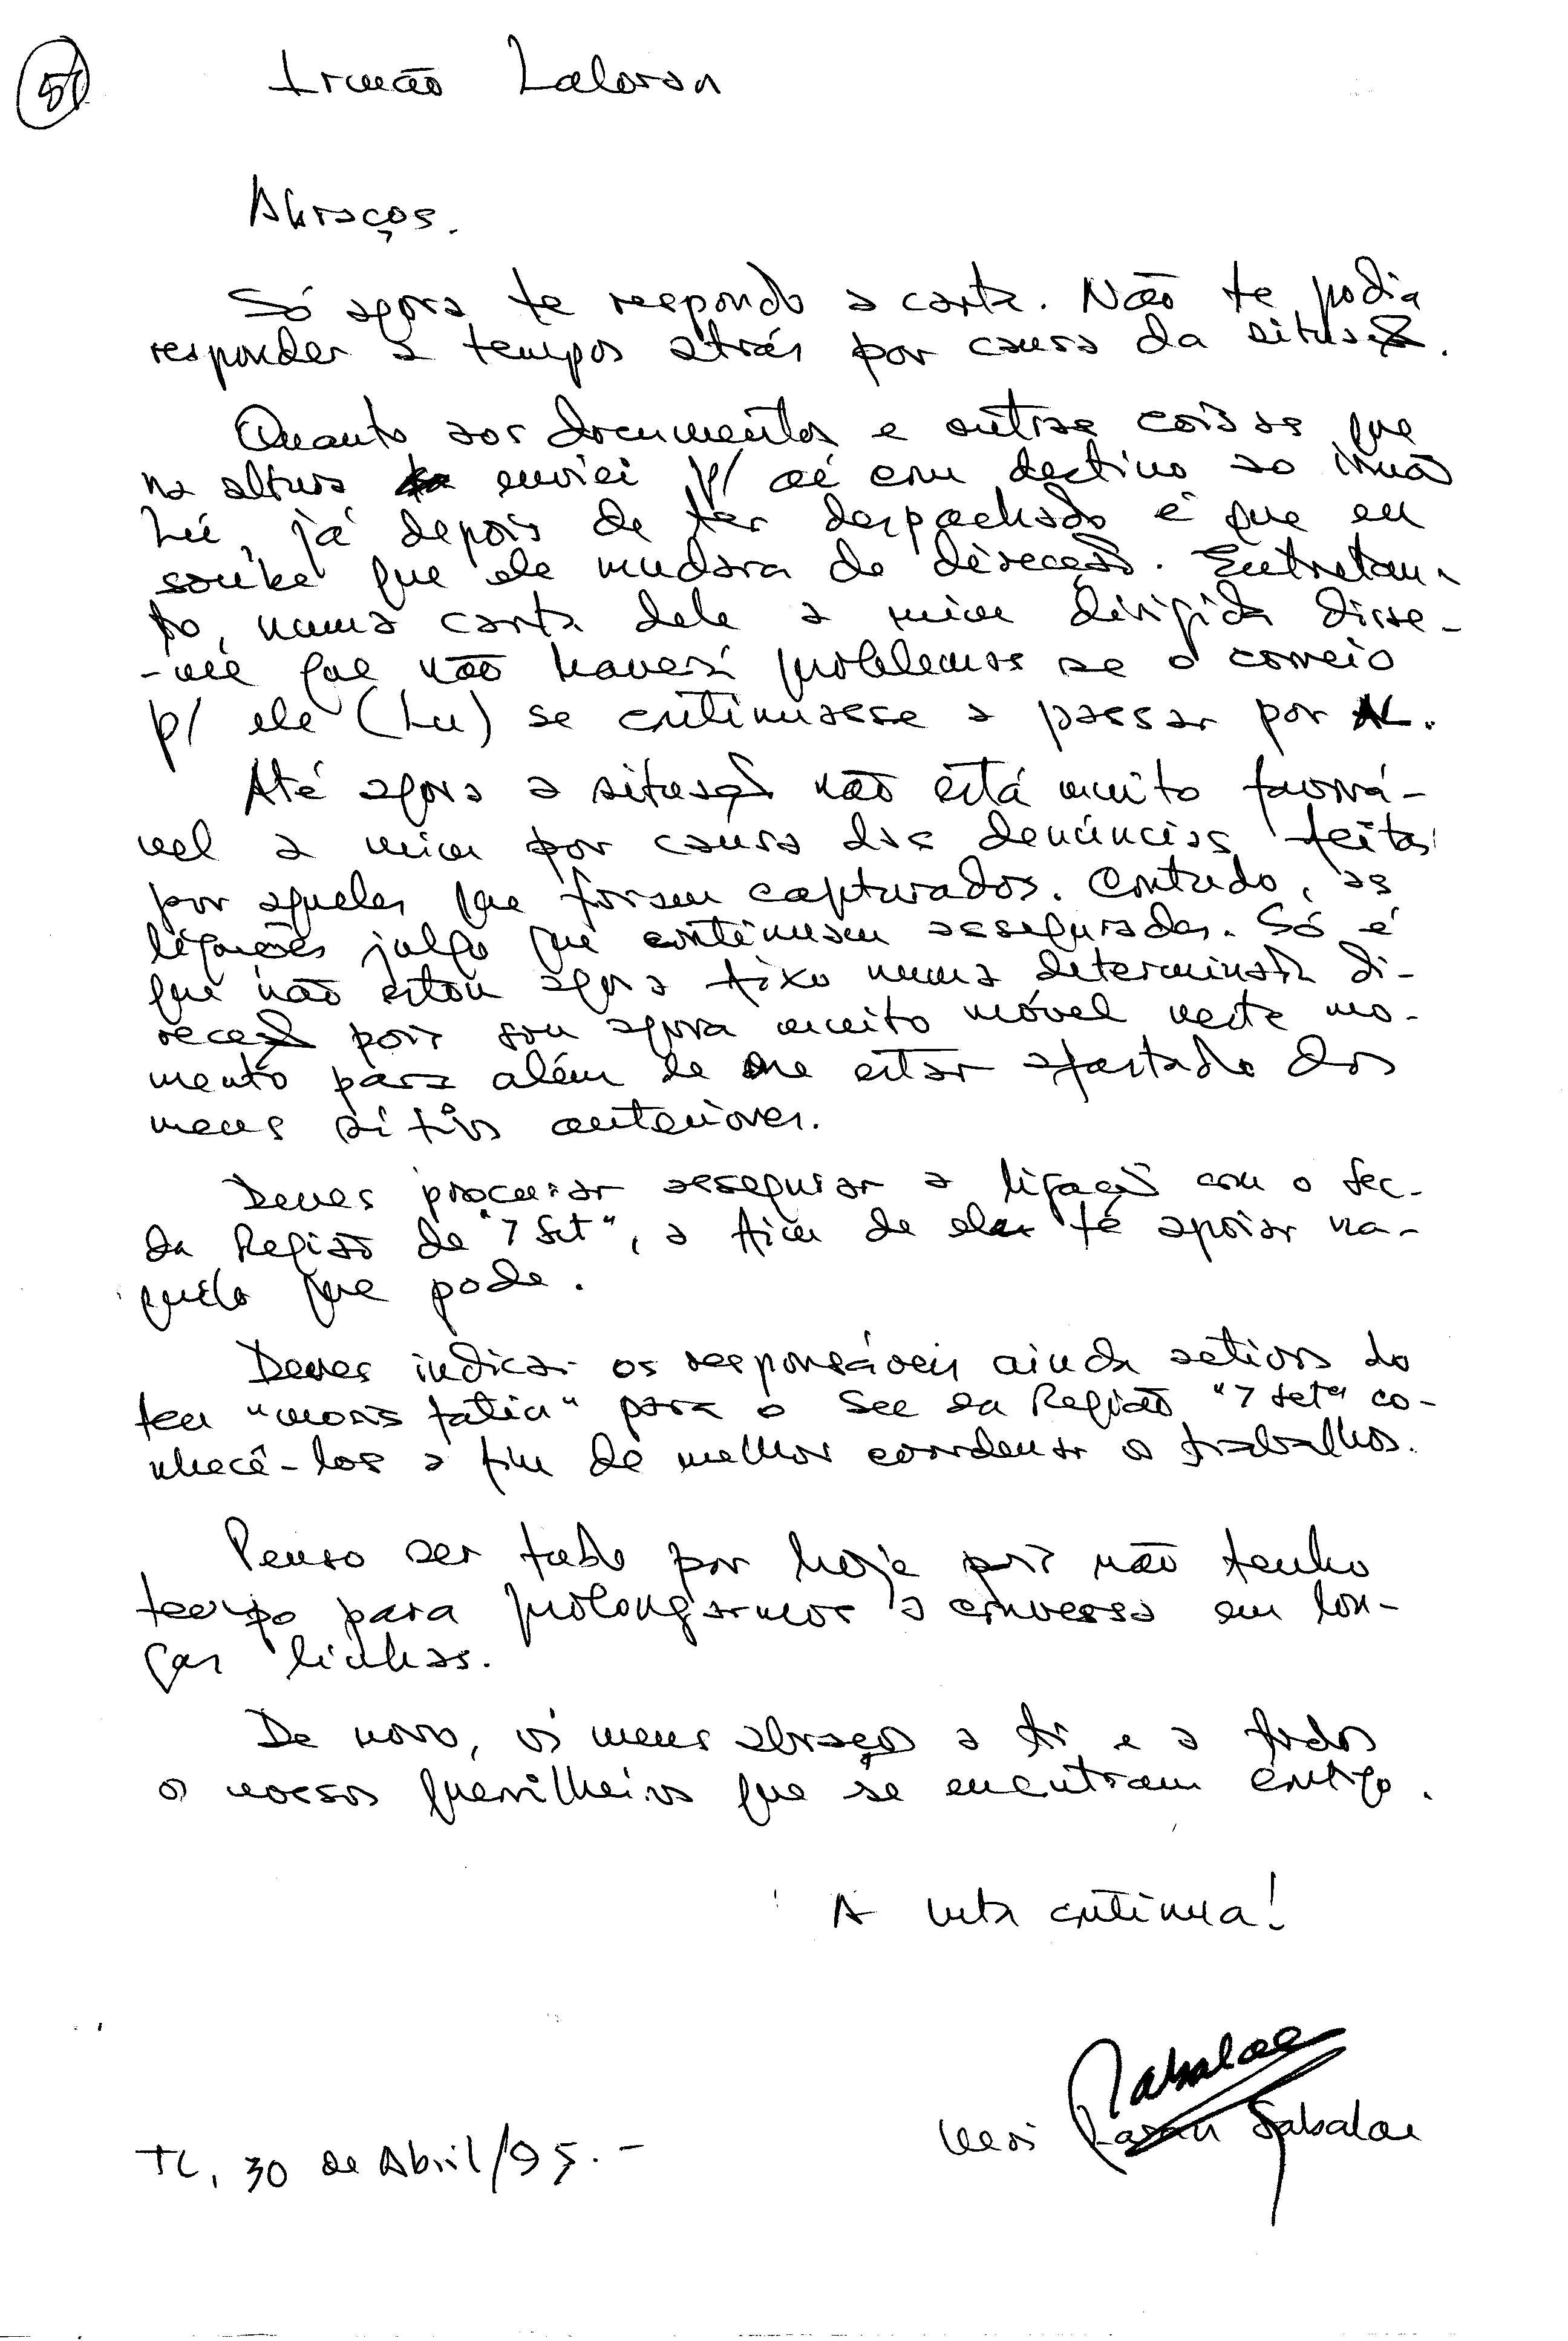 51
Irmão Laloran
Abraços.
Só agora te respondo a carta. Não te podia
responder a tempos atrás por causa da situação.
Quanto aos documentos e outras coisas que
na altura enviei p/ aí com destino ao irmão
Lú, já depois de ter despachado é que eu
soube que ele mudara de direcção. Entretan-
to, numa carta dele a mim dirigida disse-
-me que não haverá problemas se o correio
p/ ele (Lu) se continuasse a passar por AL.
Até agora a situação não está muito favorá-
vel a mim por causa das denúncias feitas
por aqueles que foram capturados. Contudo, as
ligações julgo que continuam asseguradas. Só é
que não estou agora fixo numa determinada di-
recção pois sou agora muito móvel neste mo-
mento para além de me estar afastado dos
meus sítios anteriores.
Deves procurar assegurar a ligação com o Sec.
da Região de "7 Set", a fim de ele te apoiar na-
quilo que pode.
Deves indicar os responsáveis ainda activos do
teu "mons fatin" para o Sec da Região "7 Set" co-
nhecê-los a fim de melhor coordenar os trabalhos.
Penso ser tudo por hoje pois não tenho
tempo para prolongarmos a conversa em lon-
gas linhas.
De novo, os meus abraços a ti e a todos
os nossos guerrilheiros que se encontram contigo.
A luta continua!
Sabalae
Keri Laran Sabalae
TL, 30 de Abril/95.-